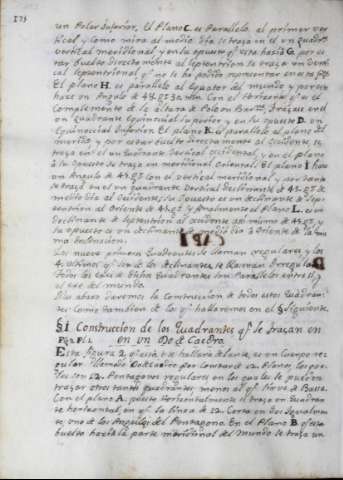 un Polar Inferior. El Plano C. es Parallelo al primer ver
tical y como mira al medio dia se traza en el un quadrte
vertical meridional, y en la opuesto qe esta hacia G. por es
tar buelto directamente al septentrion se traza un verti
cal septentrional qe no se ha podido representar en esta figa
El plano H. es parallelo al Equator del mundo y por esto
hace un Angulo de con el Horizonte qe es el
Complemento de la altura de Polo en Barna. trazase en el
un quadrante Equinoccial superior y en la opuesto D. un
equinoccial Inferior. El plano K. es parallelo al plano del
meridio. y por estar buelto directamente al occidente, se
traza en el un quadrante vertical occidental, y en el plano
a la opuesto se traza un meridional oriental. El plano I. hace
un Angulo de 45.gs con el vertical meridional y por tanto
se traza en el un quadrante vertical declinante de 45.gs de
medio dia al occidente, su opuesto es un declinante de sep
tentrion al Oriente de 45.gs y finalmente el plano L. es un
declinante de septentrion al occidente assi mismo de 45.gs y
la opuesto es un declinante de medio dia a Oriente de la mis
ma declinacion.
Los nueve primeros Quadrantes se llaman regulares y los
4. ultimos qe son los declinantes, se llaman Irregulares
todos los exes de dichos Quadrantes son Parallelos entre si y
al exe del mundo.
Mas abaxo daremos la construccion de todos estos Quadran
tes como tambien de los qe hallaremos en el § siguiente.
§ I Construccion de los Quadrantes qe se trazan en
Fig. 2. Pl. 1. en un Do de Caedro
Esta figura 2. qe está de tallara delante, es un Cuerpo re
gular llamado Dodecaedro por constar de 12. Planos, los qua
les son 12. Pentagonos regulares en los quales se pueden
trazar otros tantos quadrantes, menos al qe sirve de Bassa.
Con el plano A. puesto Horizontalmente se traza un Quadran
te horizontal, en qe la linea de 12. Corta en dos igualmen
te, uno de los Angulos del Pentagono. En el Plano B. qe esta
buelto hacia la parte meridional del Mundo se traza un